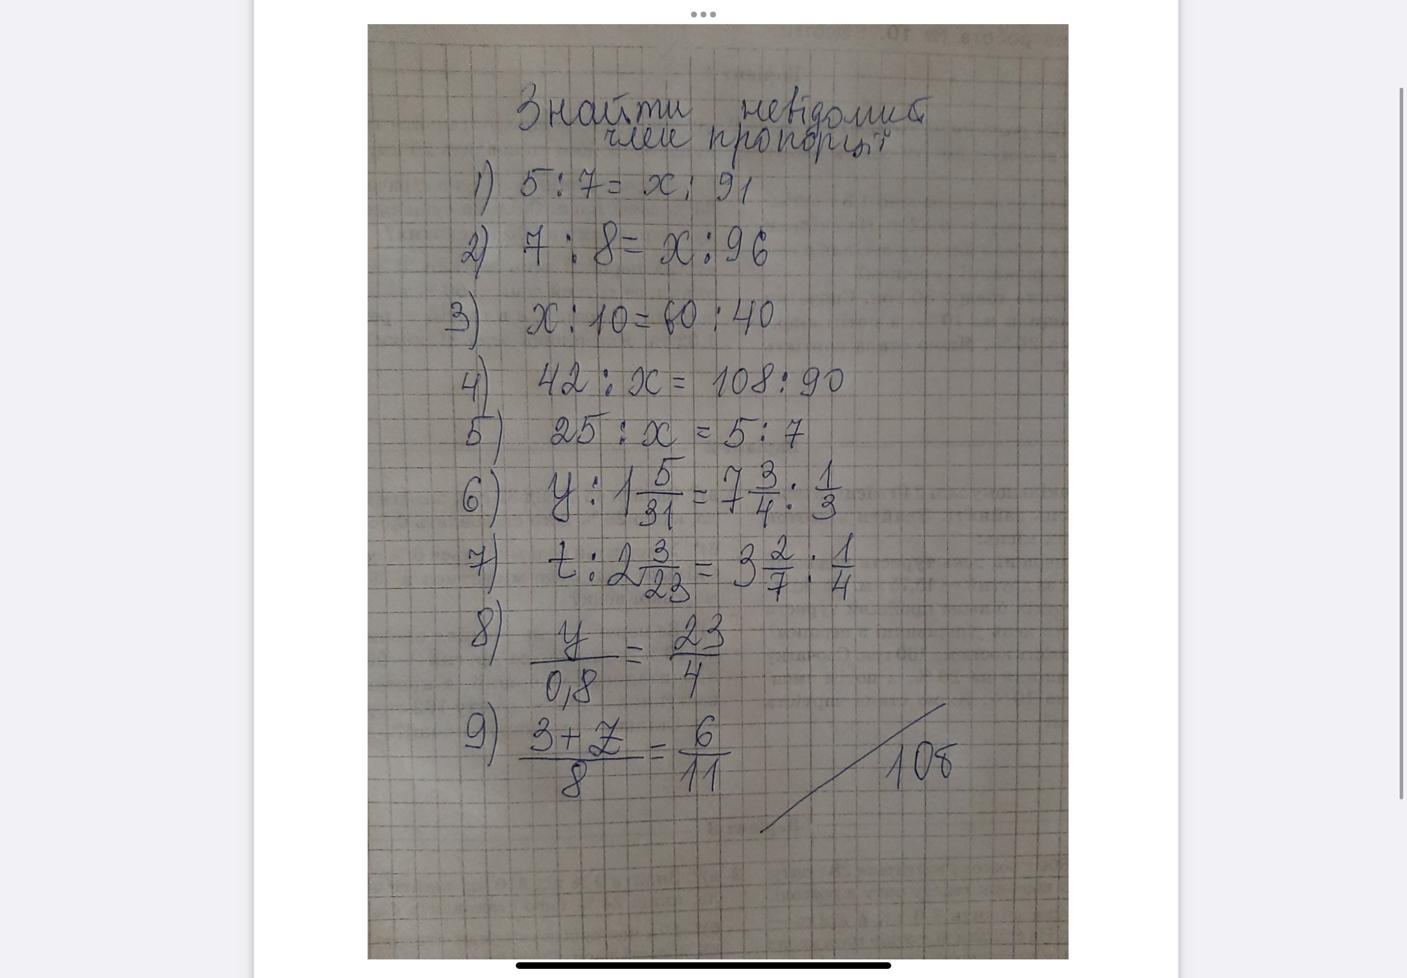 Знайти невідомий
член пропорції
1) 5 : 7 = x : 91
2) 7 : 8 = x : 96
3) x : 10 = 60 : 40
4) 42 : x = 108 : 90
5) 25 : x = 5 : 7
6) y : 1 5/31 = 7 3/4 : 1/3
7) t : 2 3/23 = 3 2/7 : 1/4
8) y/0,8 = 23/4
9) (3+z)/8 = 6/11
108